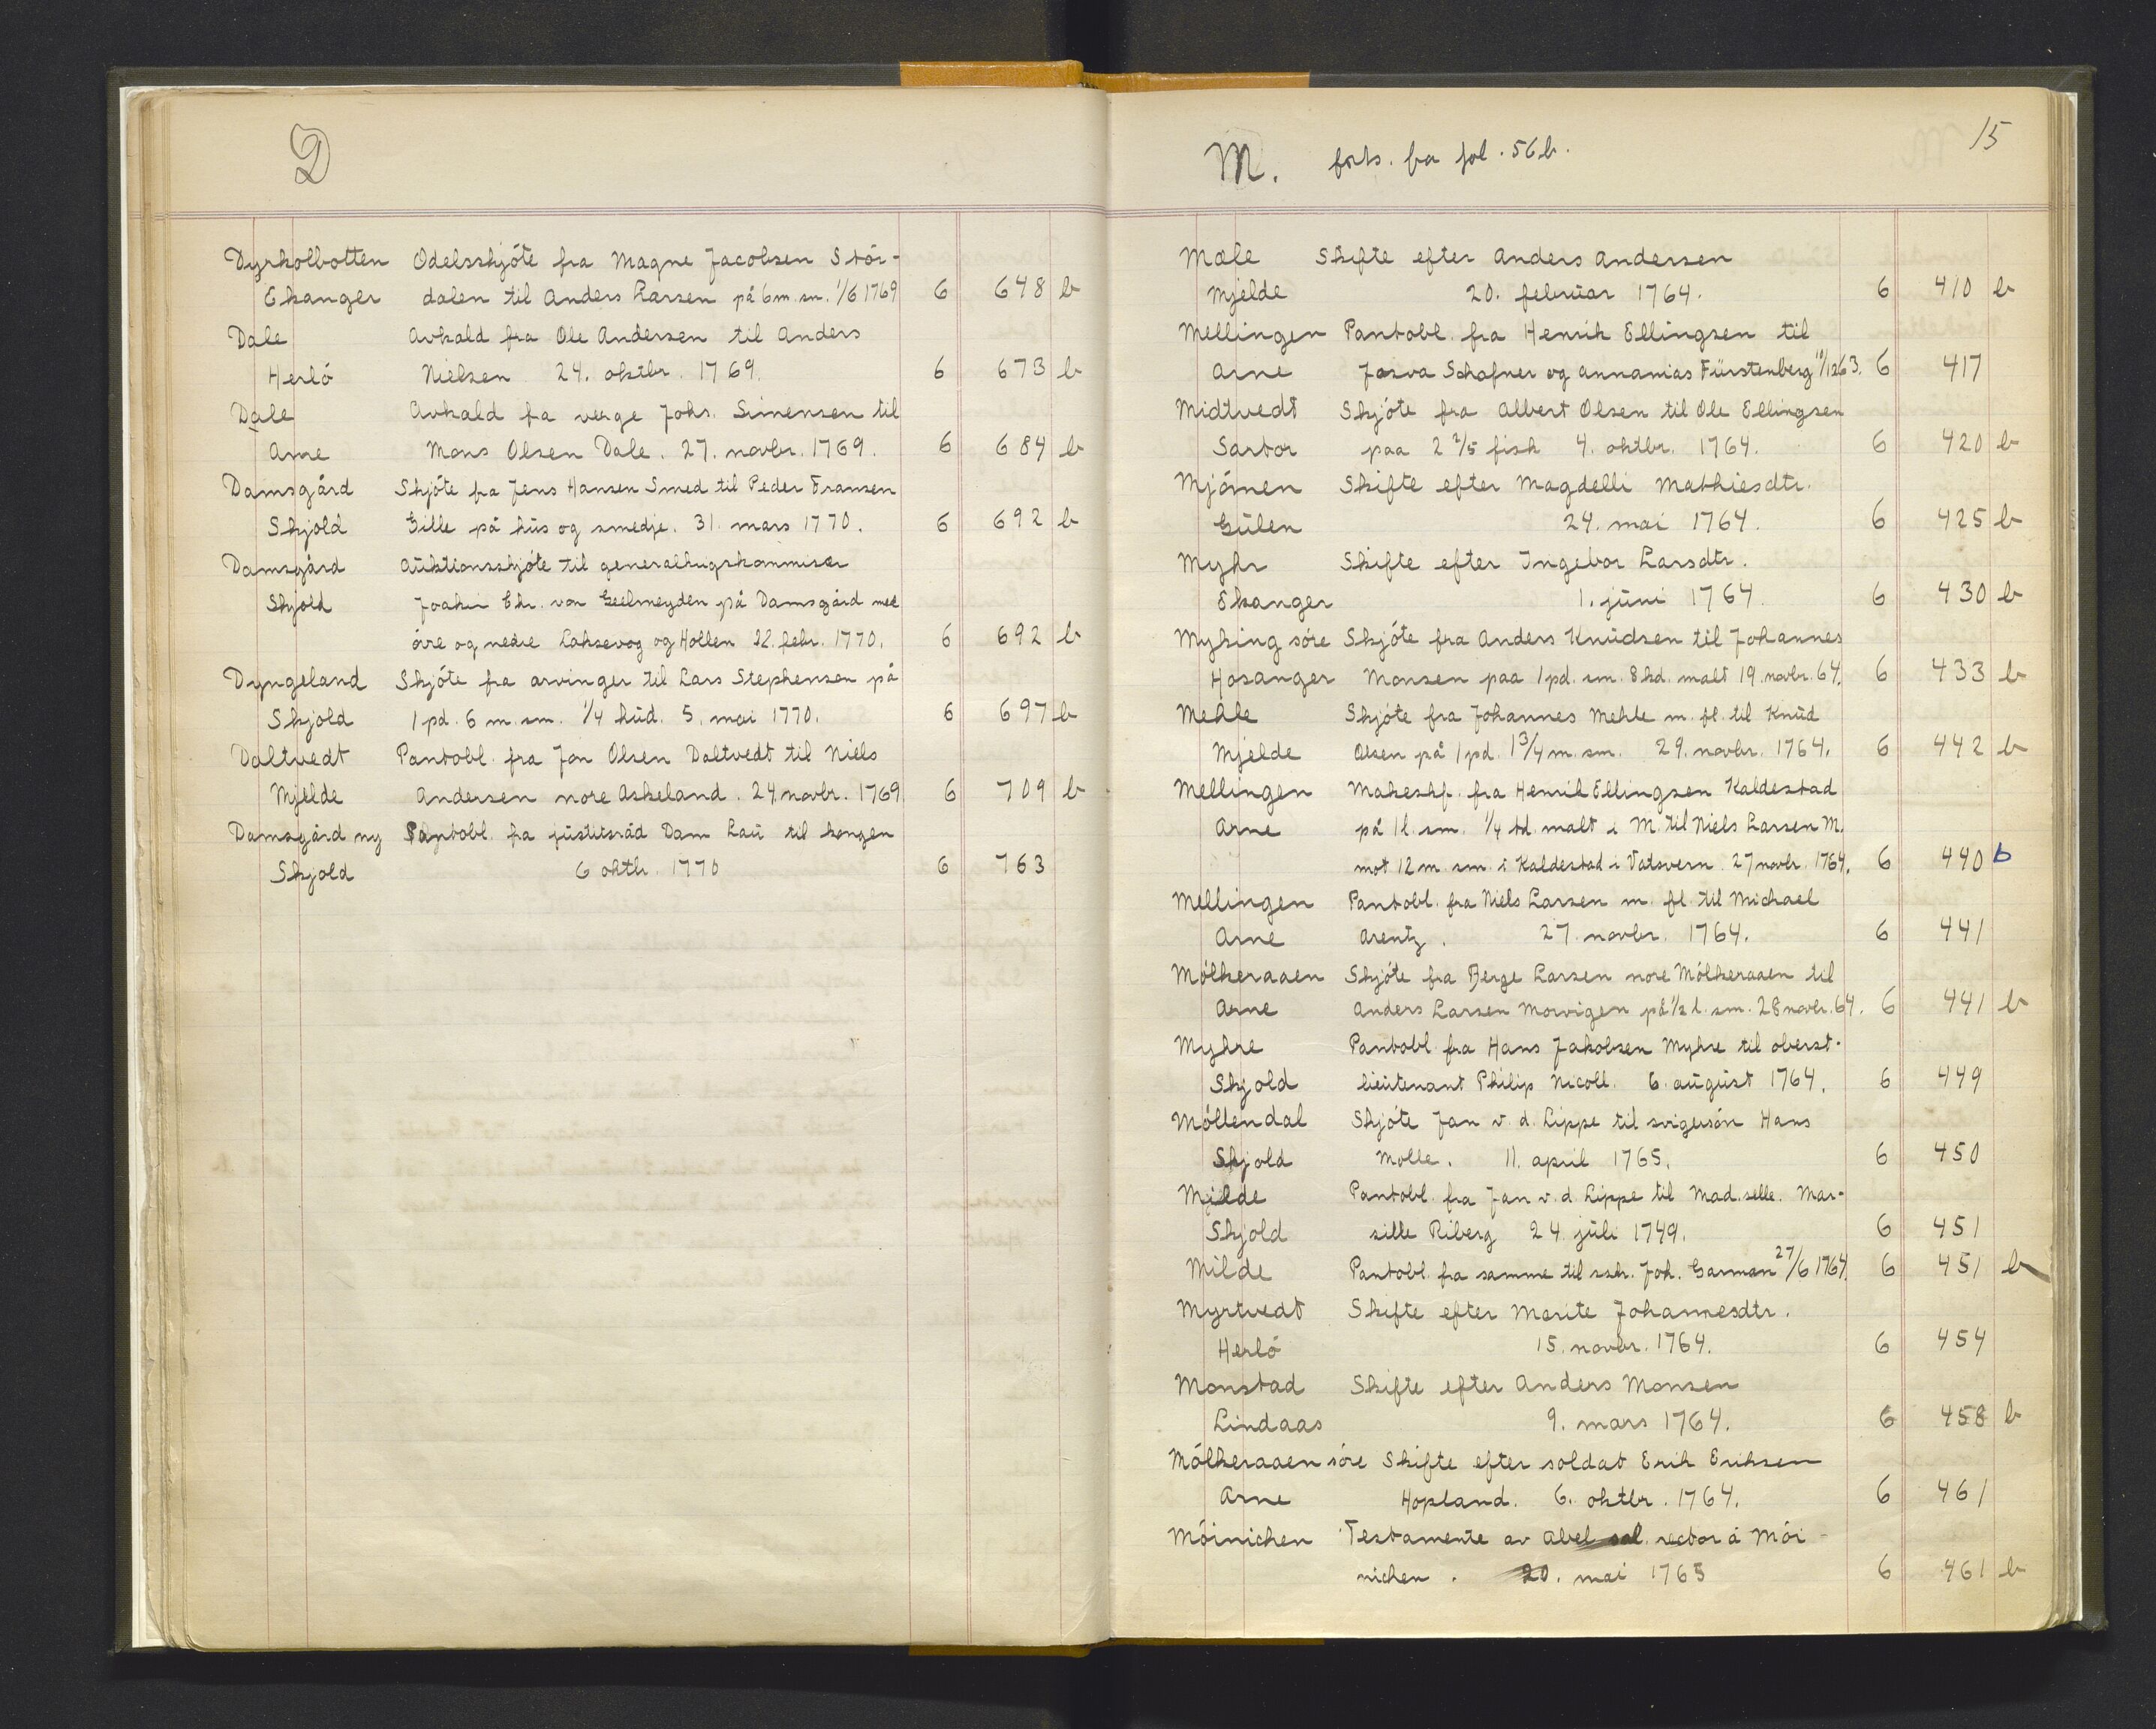 D
Dyrkolbotten Odelsskjóte fra Magne Jacobsen Stór-
Ekanger dalen til Anders Larsen på 6 m. sm. 1/6 1769 6 648 b
Dale Avkald fra Ole Andersen til Anders
Herló Nielsen 24. oktbr. 1769. 6 673 b
Dale Avkald fra verge Johs. Simensen til
Arne Mons Olsen Dale. 27. novbr. 1769. 6 684 b
Damsgård Skjóte fra Jens Hansen Smed til Peder Fransen
Skjold Gille på hus og smedje. 31. mars 1770. 6 692 b
Damsgård Auktionsskjóte til generalkrigskommisær
Skjold Joakim Chr. von Geelmeyden på Damsgård med
óvre og nedre Laksevog og Hollen 22. febr. 1770. 6 692 b
Dyngeland Skjóte fra arvinger til Lars Stephensen på
Skjold 1 pd. 6 m. sm. 1/4 hud. 5. mai 1770. 6 697 b
Daltvedt Pantobl. fra Jon Olsen Daltvedt til Niels
Mjelde Andersen nore Askeland. 24. novbr. 1769 6 709 b
Damsgård ny Pantobl. fra justitsråd Dam Lau til kongen
Skjold 6 oktb. 1770 6 763
M. forts. fra fol. 56 b. 15
Mæle Skifte efter Anders Andersen
Mjelde 20. februar 1764. 6 410 b
Mellingen Pantobl. fra Henrik Ellingsen til
Arne Josva Schafner og Annanias Fürstenberg 6 417
Midtvedt Skjóte fra Albert Olsen til Ole Ellingsen
Sartor paa 2 2/5 fisk 4. oktbr. 1764. 6 420 b
Mjómen Skifte efter Magdelli Mathiesdtr.
Gulen 24. mai 1764. 6 425 b
Myhr Skifte efter Ingebor Larsdtr.
Ekanger 1. juni 1764. 6 430 b
Myking sóre Skjóte fra Anders Knudsen til Johannes
Hosanger Monsen paa 1 pd. sm. 8 kd. malt 19. novbr. 64. 6 433 b
Mehle Skjóte fra Johannes Mehle m. fl. til Knud
Mjelde Olsen på 1 pd. 1 3/4 m. sm. 29. novbr. 1764. 6 442 b
Mellingen Makeskf. fra Henrik Ellingsen Kaldestad
Arne på 1 l. sm. 1/4 td. malt i M. til Niels Larsen M.
mot 12 m. sm. i Kaldestad i Vatsvern. 27 novbr. 1764. 6 440 b
Mellingen Pantobl. fra Niels Larsen m. fl. til Michael
Arne Arentz. 27. novbr. 1764. 6 441
Mólkeraaen Skjóte fra Berge Larsen nore Mólkeraaen til
Arne Anders Larsen Morvigen på 1/2 l. sm. 28 novbr. 64. 6 441 b
Myhre Pantobl. fra Hans Jakobsen Myhre til oberst-
Skjold lieutenant Philip Nicoll. 6. august 1764. 6 449
Móllendal Skjóte Jan v. d. Lippe til svigersón Hans
Skjold Molle. 11. april 1765. 6 450
Milde Pantobl. fra Jan v. d. Lippe til Mad.selle. Mar-
Skjold sille Riberg 24. juli 1749. 6 451
Milde Pantobl. fra samme til Joh. Garman 27/6 1764. 6 451 b
Myrtvedt Skifte efter Marite Johannesdtr.
Herló 15. novbr. 1764. 6 454
Monstad Skifte efter Anders Monsen
Lindaas 9. mars 1764. 6 458 b
Mólkeraaen sóre Skifte efter soldat Erik Eriksen
Arne Hopland. 6. oktbr. 1764. 6 461
Móinichen Testamente av Abel sal. rector á Mói-
nichen. 20. mai 1765 6 461 b